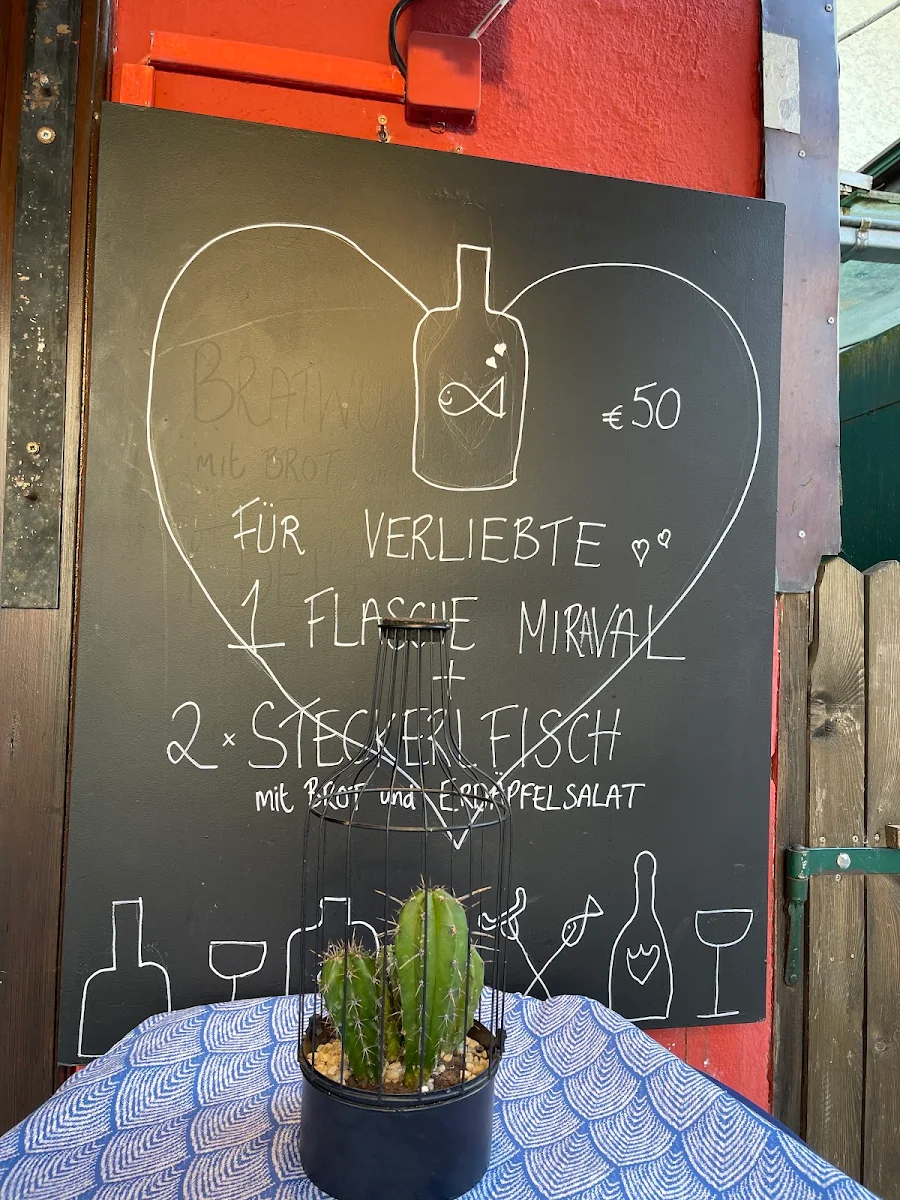 €50
BRATWUR
mit BROT
FÜR VERLIEBTE
1 FLASCHE MIRAVAL
+
2 × STECKERLFISCH
mit BROT und ERDÄPFELSALAT